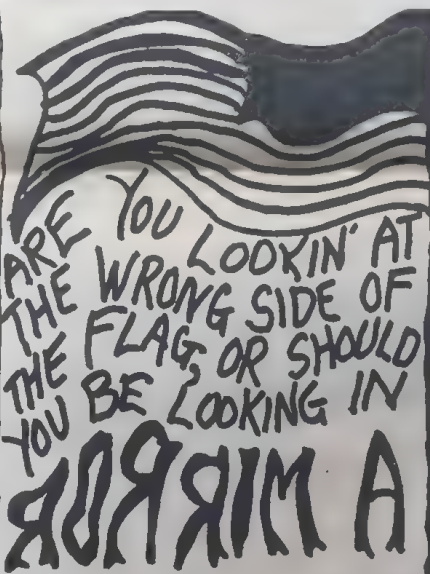 ARE YOU LOOKIN' AT
THE WRONG SIDE OF
THE FLAG, OR SHOULD
YOU BE LOOKING IN
A MIRROR